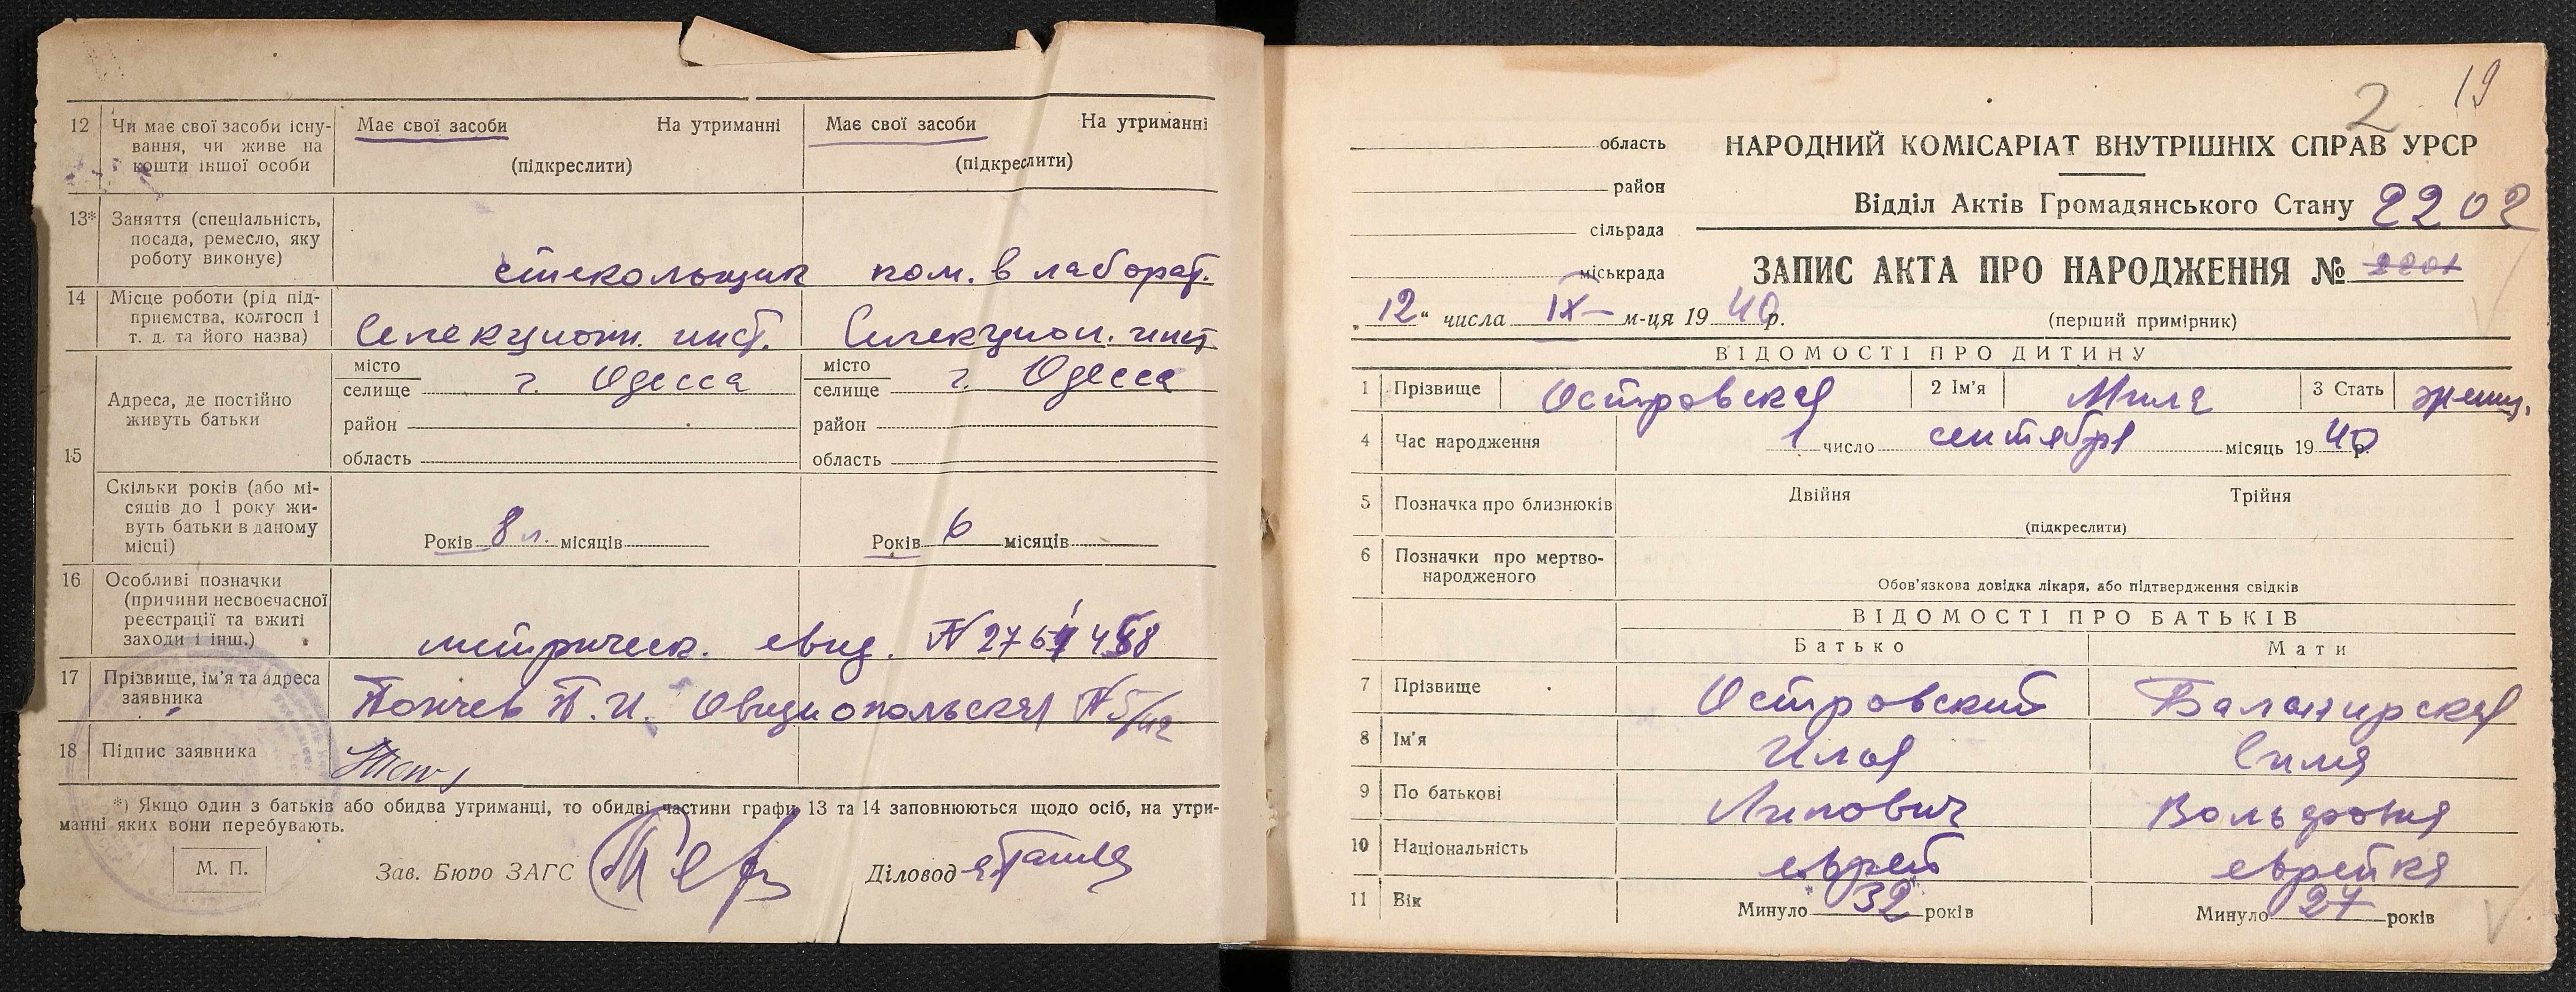 12 Чи має свої засоби існування, чи живе на кошти іншої особи
Має свої засоби На утриманні
(підкреслити)
Має свої засоби На утриманні
(підкреслити)
13* Заняття (спеціальність, посада, ремесло, яку роботу виконує)
стекольщик
пом. в лаборат.
14 Місце роботи (рід підприємства, колгосп і т. д. та його назва)
Селекционн. инст.
Селекцион. инст
15 Адреса, де постійно живуть батьки
місто
селище г. Одесса
район
область
місто
селище г. Одесса
район
область
Скільки років (або місяців до 1 року живуть батьки в даному місці)
Років 8 л. місяців
Років 6 місяців
16 Особливі позначки (причини несвоєчасної реєстрації та вжиті заходи і інш.)
метрическ. свид. №
17 Прізвище, ім'я та адреса заявника
Овидиопольская № 5/
18 Підпис заявника
*) Якщо один з батьків або обидва утриманці, то обидві частини графи 13 та 14 заповнюються щодо осіб, на утри-
манні яких вони перебувають.
М. П.
Зав. Бюро ЗАГС
Діловод
2 19
область
район
сільрада
міськрада
НАРОДНИЙ КОМІСАРІАТ ВНУТРІШНІХ СПРАВ УРСР
Відділ Актів Громадянського Стану 2202
ЗАПИС АКТА ПРО НАРОДЖЕННЯ № 2201
„12“ числа IX м-ця 1940р.
(перший примірник)
ВІДОМОСТІ ПРО ДИТИНУ
1 Прізвище Островская 2 Ім'я Мила 3 Стать женщ.
4 Час народження 1 число сентября місяць 1940 р.
5 Позначка про близнюків Двійня Трійня
(підкреслити)
6 Позначки про мертвонародженого
Обов'язкова довідка лікаря, або підтвердження свідків
ВІДОМОСТІ ПРО БАТЬКІВ
Батько Мати
7 Прізвище Островский
8 Ім'я Илья Симя
9 По батькові Липович Вольфовна
10 Національність еврей еврейка
11 Вік Минуло 32 років Минуло 27 років